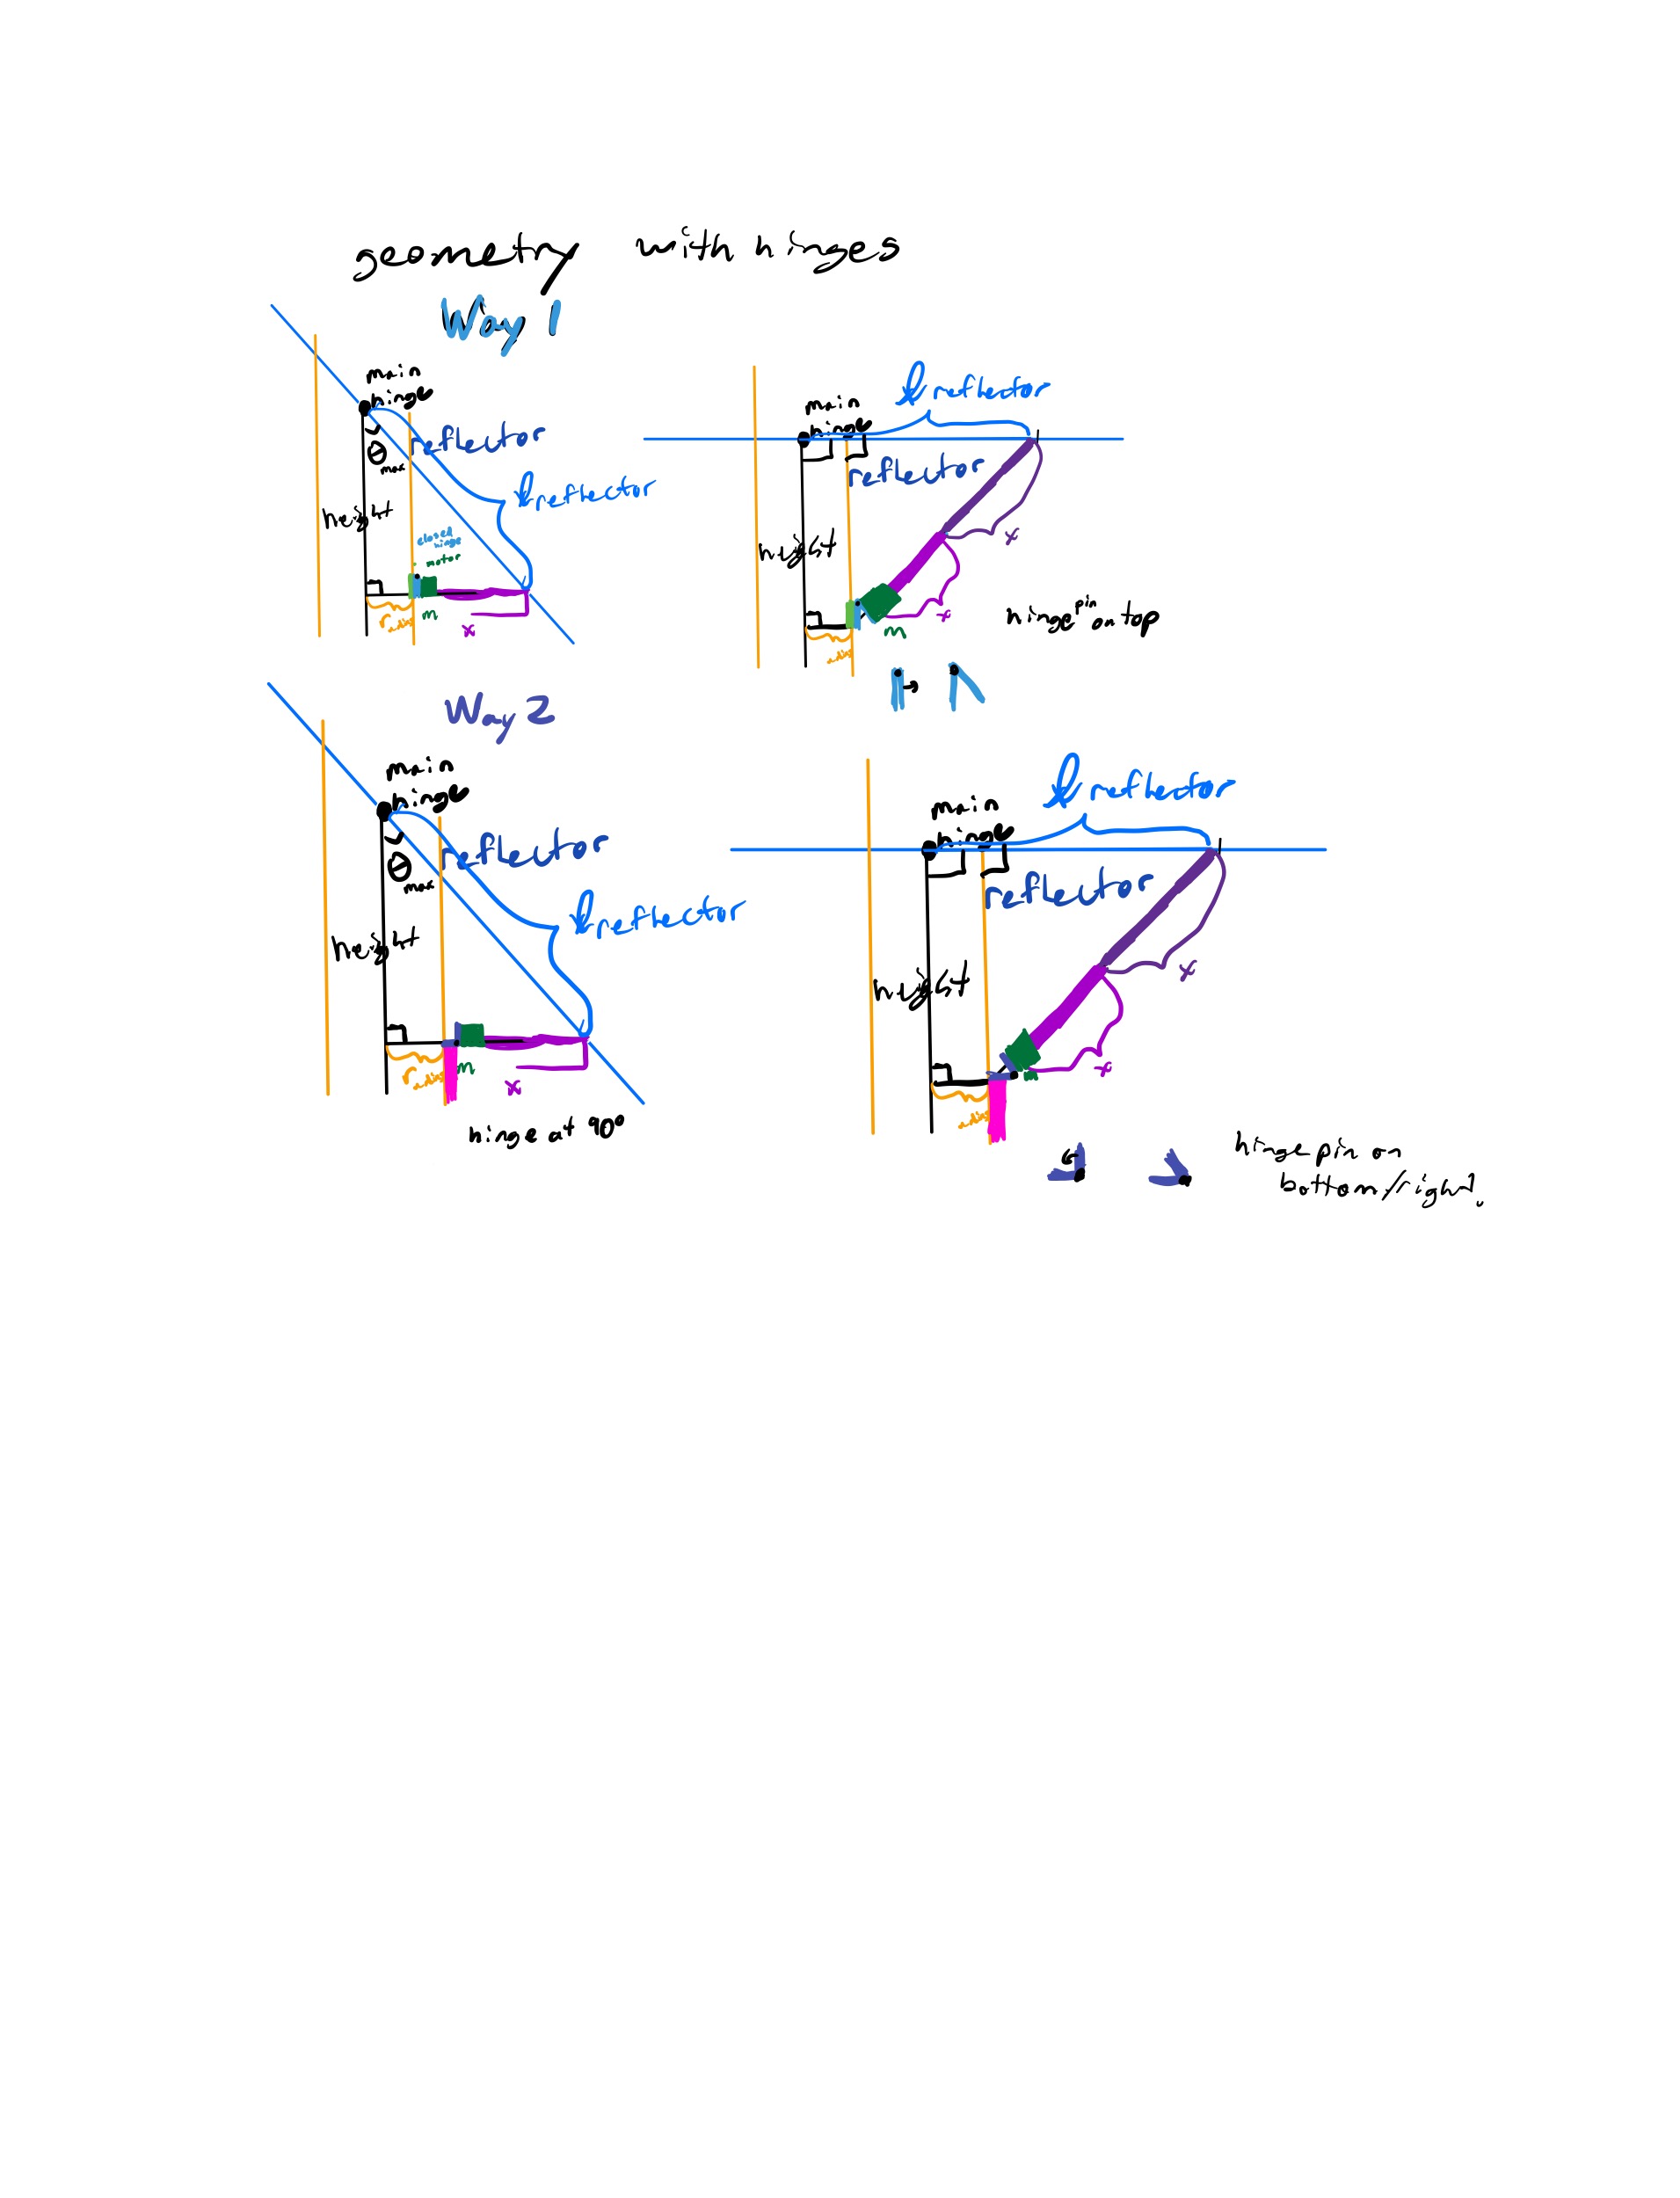 geometry with hinges
Way 1
main
hinge
θmax
reflector
ℓreflector
height
closed
hinge
motor
m
x
main
hinge
ℓreflector
reflector
height
x
x
m
hinge pin on top
Way 2
main
hinge
θmax
reflector
ℓreflector
height
m
x
hinge at 90°
main
hinge
ℓreflector
reflector
height
x
x
m
hinge pin on
bottom/right.